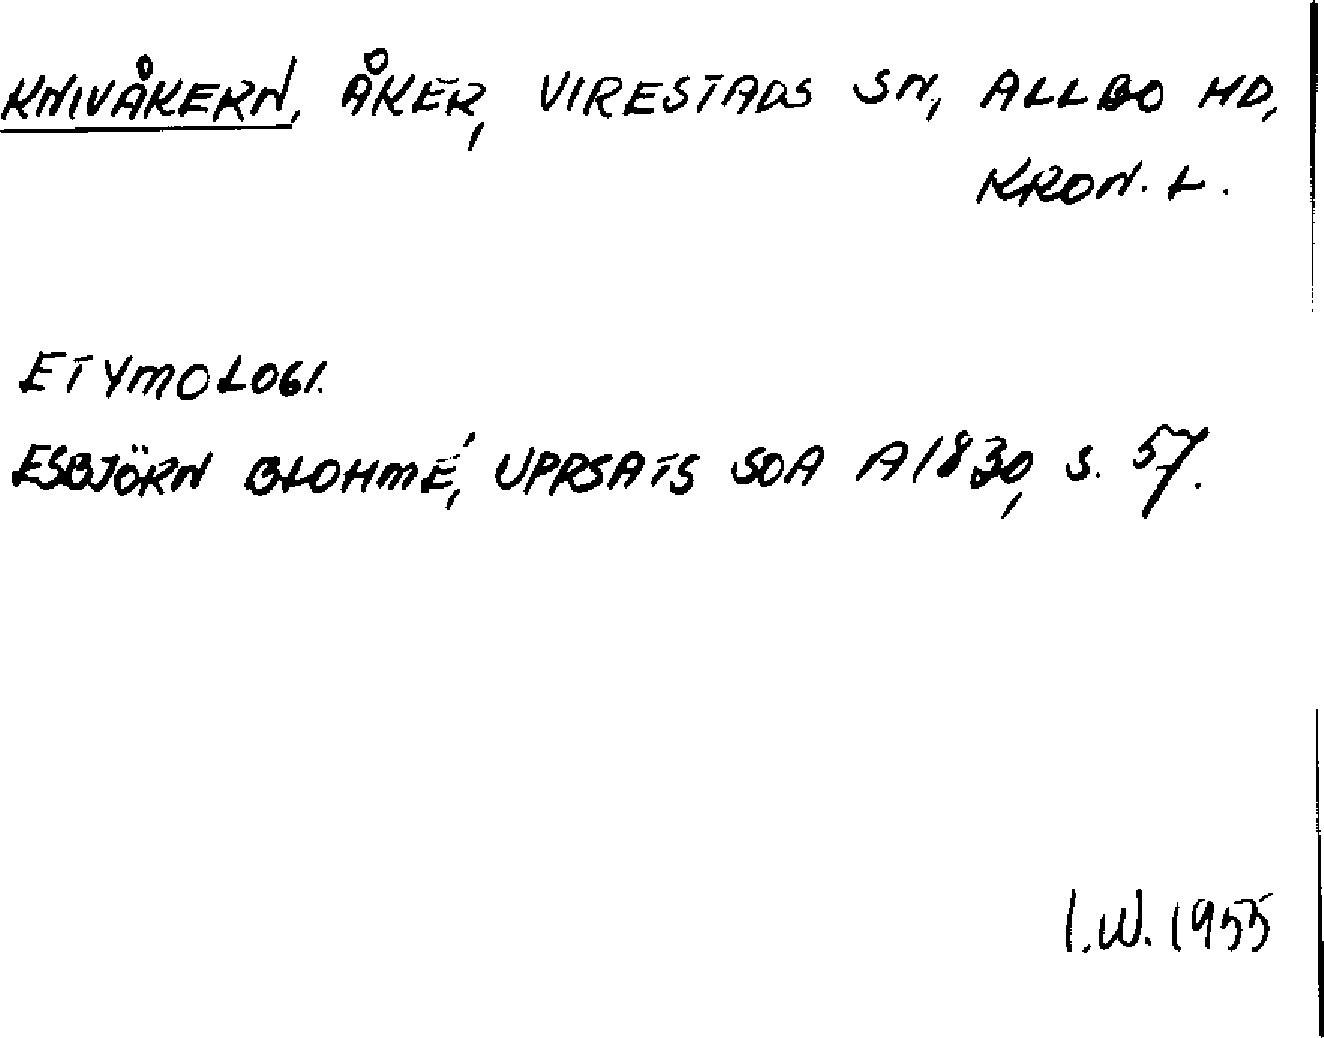 KNIVÅKERN, ÅKER, VIRESTADS SN, ALLBO HD,
KRON. L.
ETYMOLOGI.
ESBJÖRN BLOHMÉ, UPPSATS SOA A1830, S. 57.
I.W. 1955